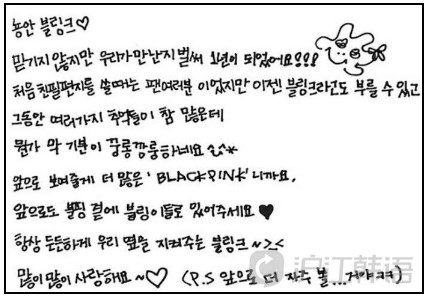 뇽안 블링크♡
믿기지 않지만 우리가 만난지 벌써 1년이 되었어요!!!
처음 친필편지를 쓸때는 팬여러분 이었지만 이젠 블링크라고도 부를 수 있고
그동안 여러가지 추억들이 참 많은데
뭔가 막 기분이 꾸룽깡룽하네요 ^^*
앞으로 보여줄게 더 많은 'BLACKPINK' 니까요,
앞으로도 블핑 곁에 블링이들로 있어주세요 ♥
항상 든든하게 우리 옆을 지켜주는 블링크 ~>_<
많이 많이 사랑해요 ~♡ (P.S 앞으로 더 자주 볼...거야 ㅋㅋ)
沪江韩语